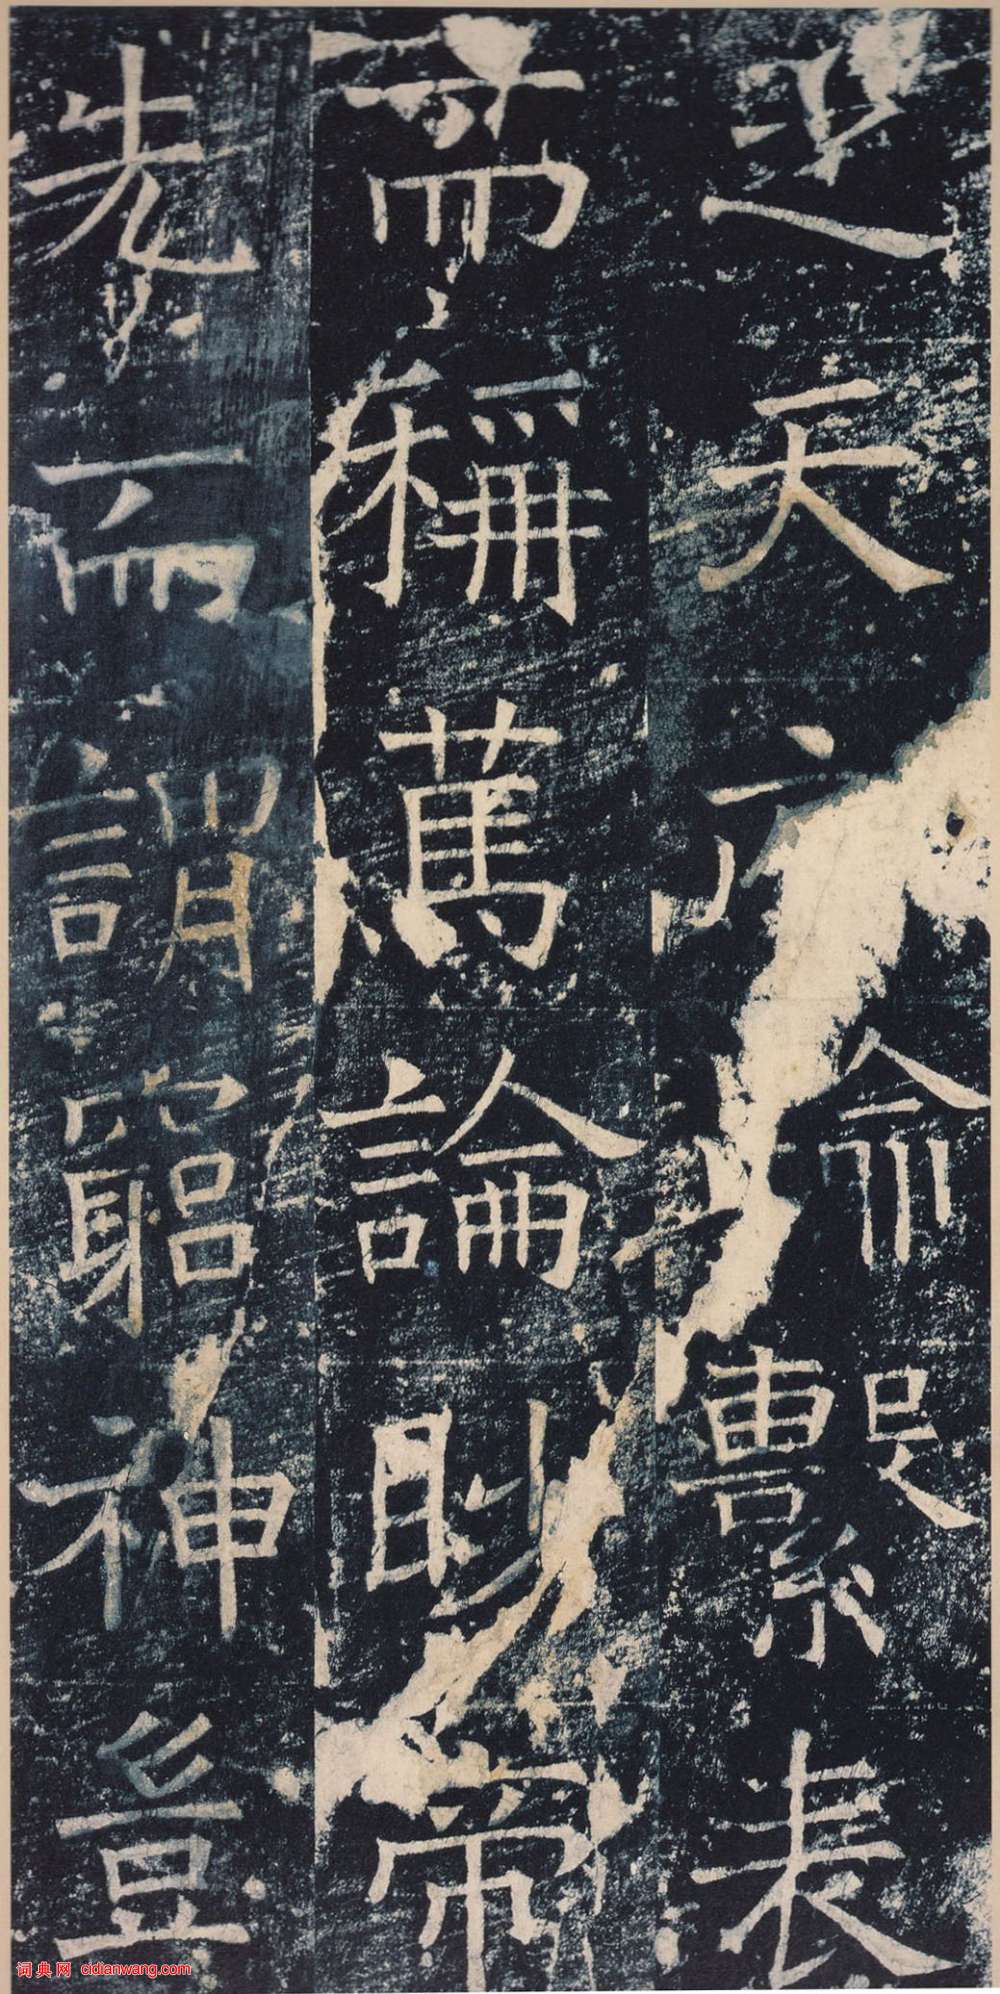 之天繫表
而稱萬論則帝
先而謂竆神豈
词典网 cidianwang.com